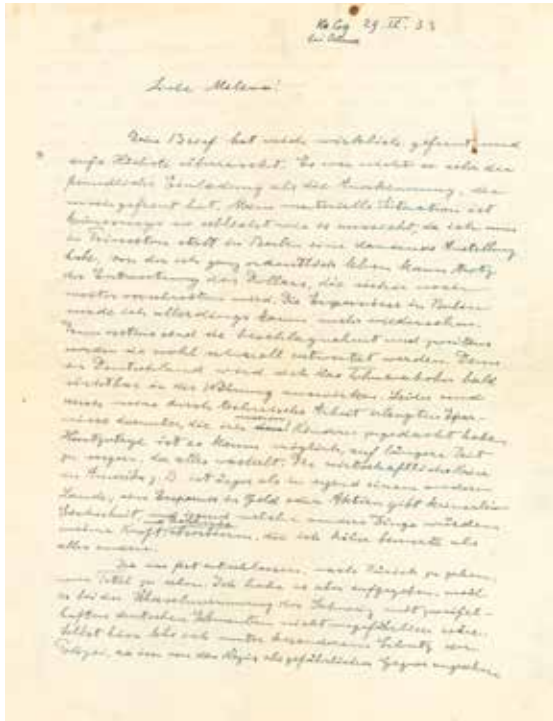 Le Coq 29. IV. 33
bei Ostende
Liebe Mileva!
Dein Brief hat mich wirklich gefreut und
aufs Höchste überrascht. Es war nicht so sehr die
freundliche Einladung als die Anerkennung, die
mich gefreut hat. Meine materielle Situation ist
keineswegs so schlecht wie es aussieht, da ich nun
in Princeton statt in Berlin eine dauernde Anstellung
habe, von der ich ganz ordentlich leben kann trotz
der Entwertung des Dollars, die sicher noch
weiter werden wird. Die Ersparnisse in Berlin
werde ich allerdings kaum mehr wiedersehen.
Denn erstens sind sie beschlagnahmt und zweitens
werden sie wohl schnell entwertet werden. Denn
in Deutschland wird sich das bald
sichtbar in der Währung auswirken. Leider sind
auch meine durch technische Arbeit erlangten Erspar-
nisse darunter, die ich Kindern zugedacht habe.
Heutzutage ist es kaum möglich, auf längere Zeit
zu sorgen, da alles wackelt. Die wirtschaftliche Krise
in Amerika z. B. ist ärger als in irgend einem anderen
Lande, ein in Gold oder Aktien gibt keinerlei
Sicherheit, und irgend welche andere Dinge würden
meine Kraft absorbieren, die ich höher bewerte als
alles andere.
Ich war fest entschlossen, nach Zürich zu gehen,
um Tetel zu sehen. Ich habe es aber aufgegeben, weil
es bei der Überschwemmung der Schweiz mit zweifel-
haften deutschen Elementen nicht ungefährlich wäre.
Selbst hier lebe ich unter besonderem Schutz der
Polizei, da ich von den Nazis als gefährlichen Gegner angesehen